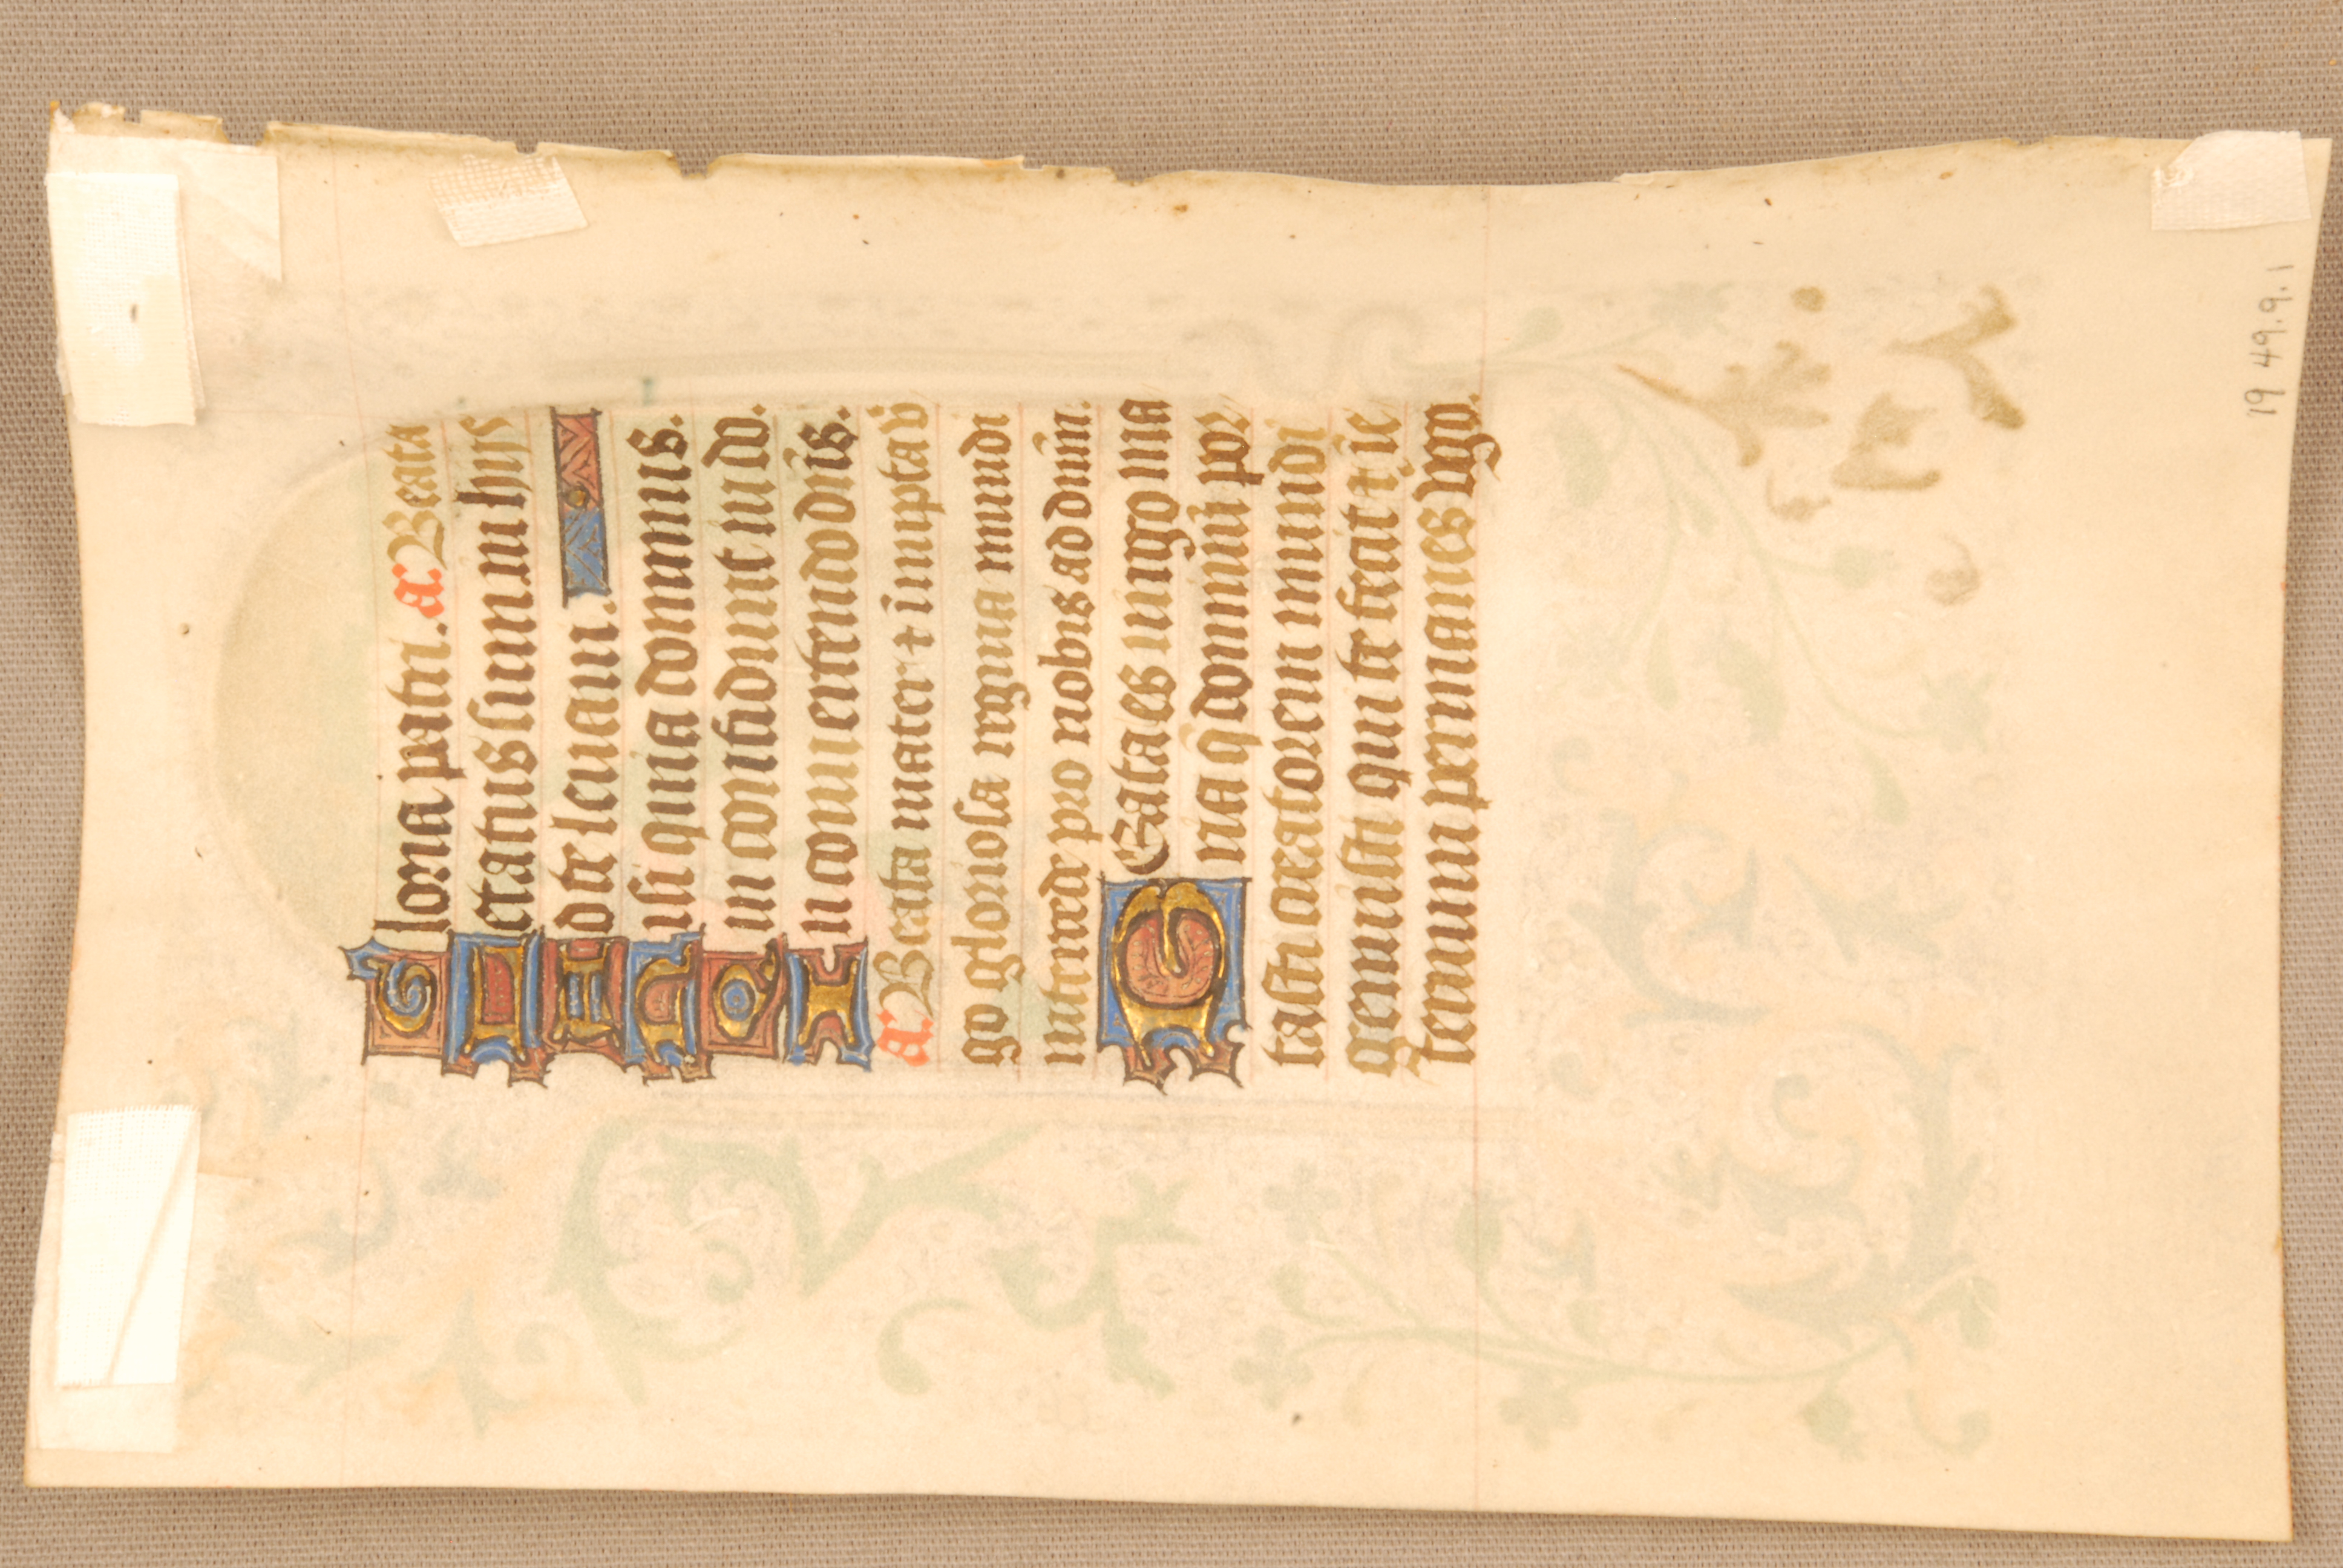 Gloria patri. a. Beata
Letatus sum in hijs
Ad te leuaui.
Nisi quia dominus.
Qui confidunt in do.
In conuertendo dñis.
a. Beata mater ⁊ innupta v̄
go gloriosa regina mundi
intercede pro nobis ad dnm̄.
BEata es uirgo ma
ria q̄ dominū por
tasti creatorem mundi
genuisti qui te fecit ⁊ ī e
ternum permanes v̄go.
19 49.9.1